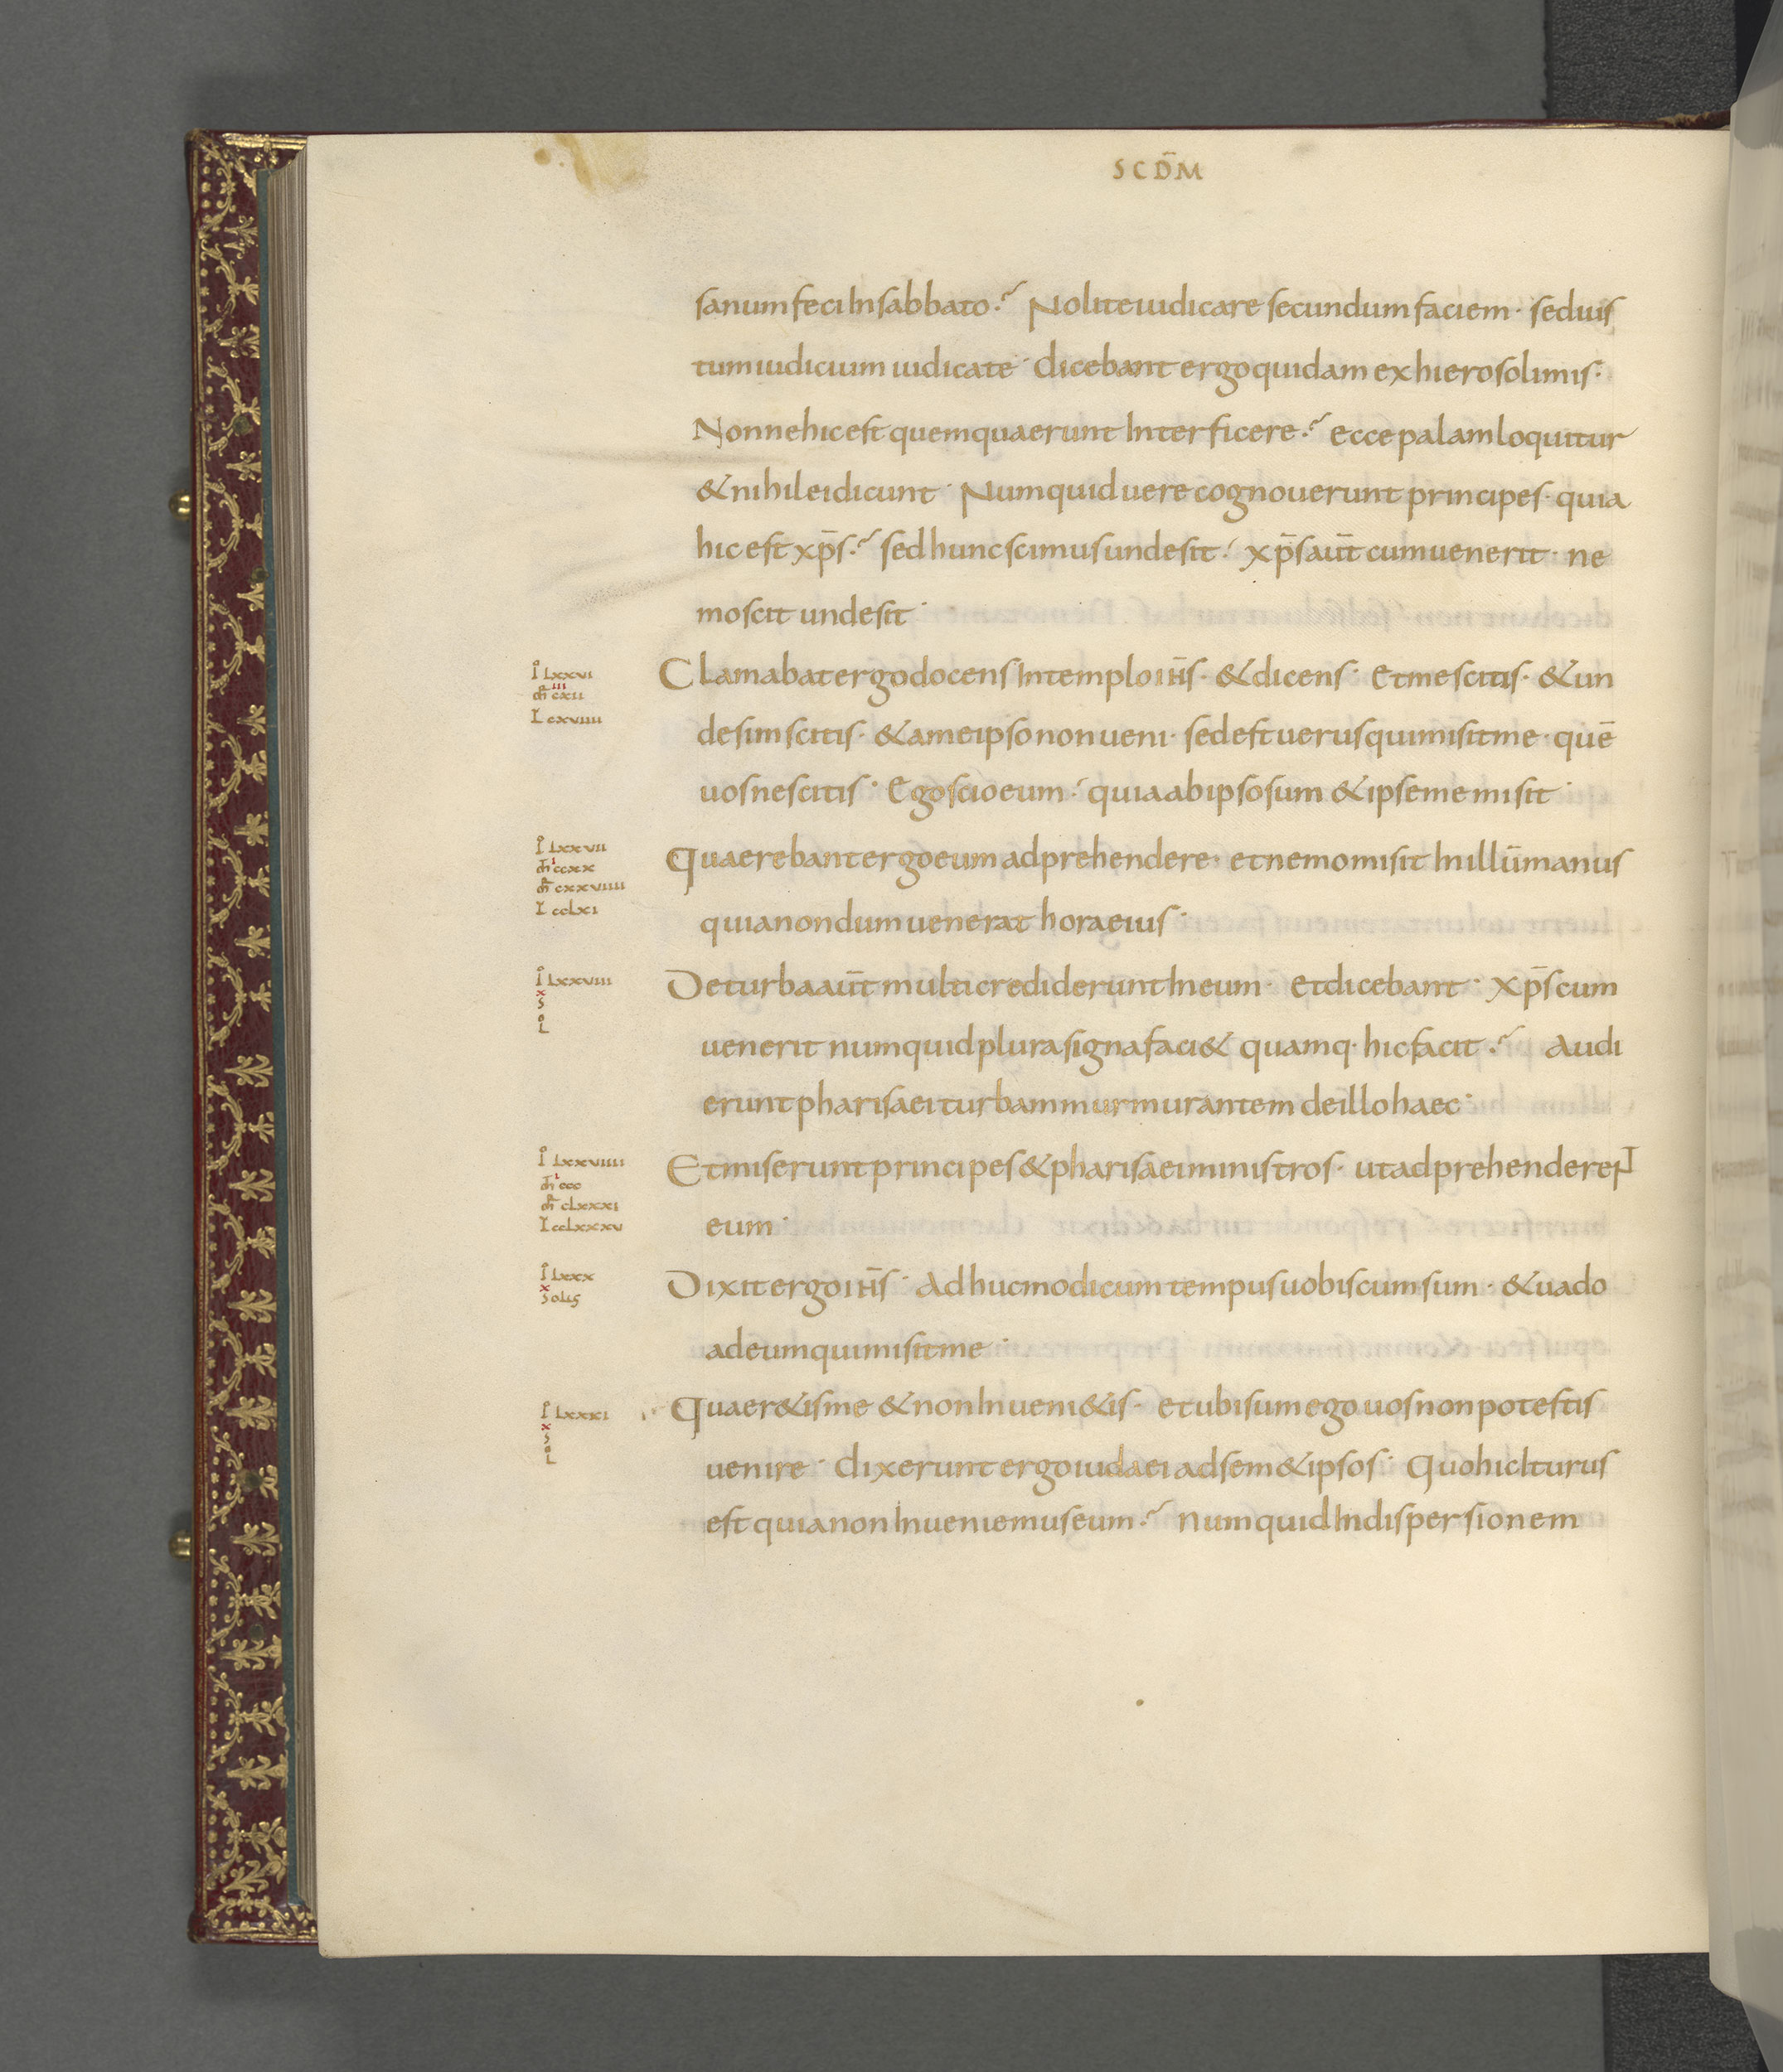 SCD̄M
sanum feci In sabbato? Nolite iudicare secundum faciem· sed ius
tum iudicium iudicate· dicebant ergo quidam ex hierosolimis·
Nonne hic est quem quaerunt Interficere? ecce palam loquitur
& nihil ei dicunt· Numquid uere cognouerunt principes· quia
hic est xp̄s? sed hunc scimus unde sit· xp̄s aūt cum uenerit· ne
mo scit unde sit·
I LXXVI
m̄ cxii
L cxviiii
Clamabat ergo docens In templo ih̄s· & dicens· Et me scitis· & un
de sim scitis· & a me ipso non ueni· sed est uerus qui misit me· quē
uos nescitis· Ego scio eum· quia ab ipso sum & ipse me misit·
I LXXVII
m̄ ccxx
m̄ cxxviiii
L ccLxi
Quaerebant ergo eum adprehendere· et nemo misit In illū manus
quia nondum uenerat hora eius·
I LXXVIII
x
S
o
L
De turba aūt multi crediderunt In eum· et dicebant· Xp̄s cum
uenerit numquid plura signa faci& quam q· hic facit? Audi
erunt pharisaei turbam murmurantem de illo haec·
I LXXVIIII
m̄ ccc
m̄ cLxxxi
L ccLxxxv
Et miserunt principes & pharisaei ministros· ut adprehenderent
eum·
I LXXX
x
Solus
Dixit ergo ih̄s· Adhuc modicum tempus uobiscum sum· & uado
ad eum qui misit me·
I LXXXI
x
S
o
L
Quaer&is me & non Inueni&is· et ubi sum ego uos non potestis
uenire· dixerunt ergo iudaei ad sem&ipsos· Quo hic Iturus
est quia non Inueniemus eum? numquid In dispersionem